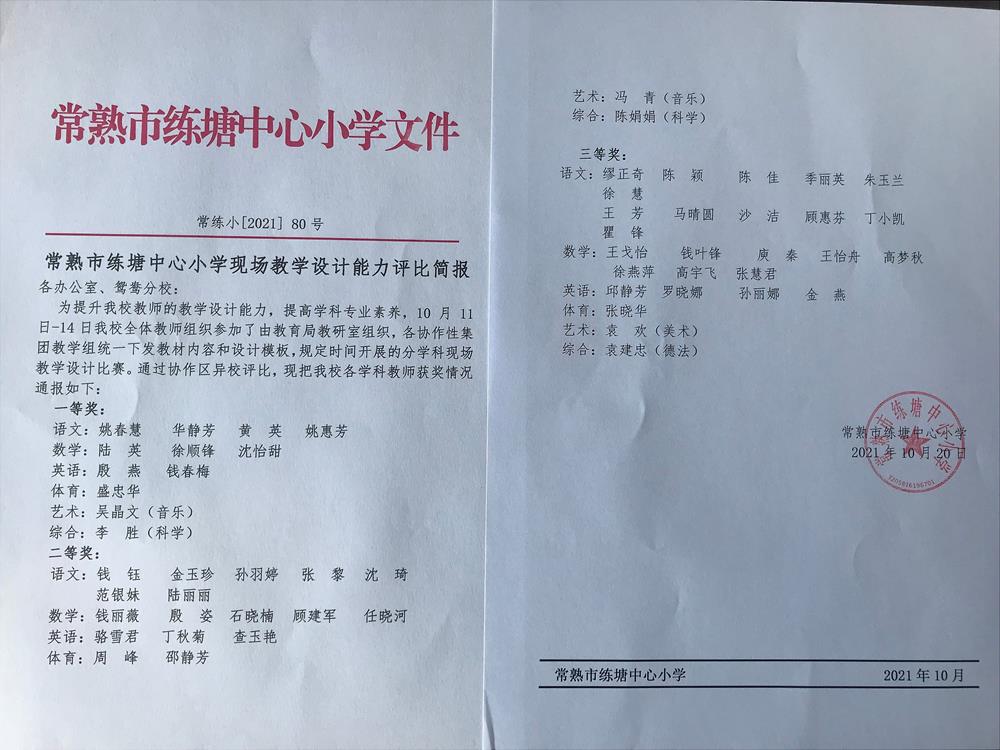 常熟市练塘中心小学文件
常练小[2021] 80 号
常熟市练塘中心小学现场教学设计能力评比简报
各办公室、鸳鸯分校：
为提升我校教师的教学设计能力，提高学科专业素养，10 月 11
日-14 日我校全体教师组织参加了由教育局教研室组织，各协作性集
团教学组统一下发教材内容和设计模板，规定时间开展的分学科现场
教学设计比赛。通过协作区异校评比，现把我校各学科教师获奖情况
通报如下：
一等奖：
语文：姚春慧 华静芳 黄 英 姚惠芳
数学：陆 英 徐顺锋 沈怡甜
英语：殷 燕 钱春梅
体育：盛忠华
艺术：吴晶文（音乐）
综合：李 胜（科学）
二等奖：
语文：钱 钰 金玉珍 孙羽婷 张 黎 沈 琦
范银妹 陆丽丽
数学：钱丽薇 殷 姿 石晓楠 顾建军 任晓河
英语：骆雪君 丁秋菊 查玉艳
体育：周 峰 邵静芳
艺术：冯 青（音乐）
综合：陈娟娟（科学）
三等奖：
语文：缪正奇 陈 颖 陈 佳 季丽英 朱玉兰
徐 慧
王 芳 马晴圆 沙 洁 顾惠芬 丁小凯
瞿 锋
数学：王戈怡 钱叶锋 庾 秦 王怡舟 高梦秋
徐燕萍 高宇飞 张慧君
英语：邱静芳 罗晓娜 孙丽娜 金 燕
体育：张晓华
艺术：袁 欢（美术）
综合：袁建忠（德法）
常熟市练塘中心小学
2021 年 10 月 20 日
常熟市练塘中心小学
常熟市练塘中心小学 2021 年 10 月